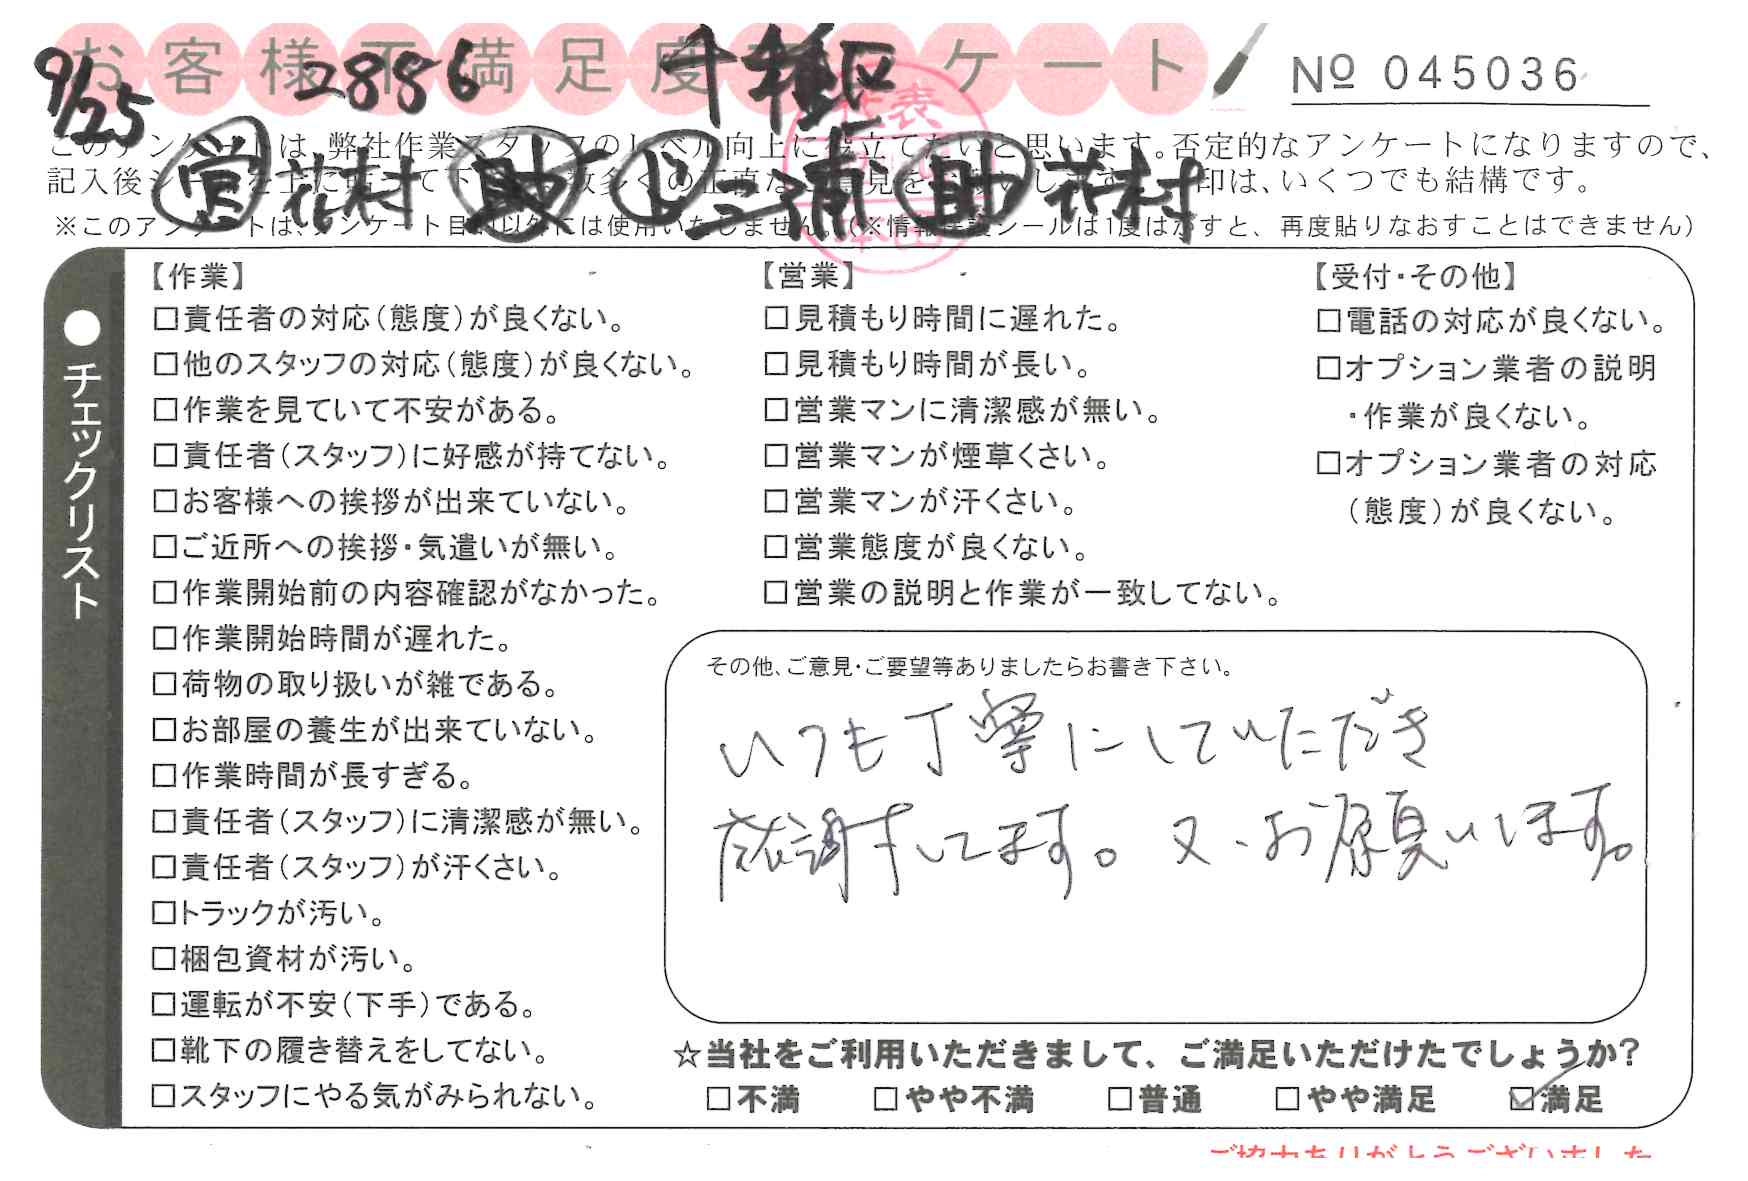 お客様不満足度アンケート
№ 045036
9/25 2886 千種区
営 花村 助 ド 三浦 助 花村
このアンケートは、弊社作業スタッフのレベル向上に役立てたいと思います。否定的なアンケートになりますので、
記入後シールを上に貼って下さい。数多くの正直なご意見をお願いします。印は、いくつでも結構です。
※このアンケートは、アンケート目的以外には使用いたしません。(※情報保護シールは1度はがすと、再度貼りなおすことはできません)
●チェックリスト
【作業】
□責任者の対応(態度)が良くない。
□他のスタッフの対応(態度)が良くない。
□作業を見ていて不安がある。
□責任者(スタッフ)に好感が持てない。
□お客様への挨拶が出来ていない。
□ご近所への挨拶・気遣いが無い。
□作業開始前の内容確認がなかった。
□作業開始時間が遅れた。
□荷物の取り扱いが雑である。
□お部屋の養生が出来ていない。
□作業時間が長すぎる。
□責任者(スタッフ)に清潔感が無い。
□責任者(スタッフ)が汗くさい。
□トラックが汚い。
□梱包資材が汚い。
□運転が不安(下手)である。
□靴下の履き替えをしてない。
□スタッフにやる気がみられない。
【営業】
□見積もり時間に遅れた。
□見積もり時間が長い。
□営業マンに清潔感が無い。
□営業マンが煙草くさい。
□営業マンが汗くさい。
□営業態度が良くない。
□営業の説明と作業が一致してない。
【受付・その他】
□電話の対応が良くない。
□オプション業者の説明
・作業が良くない。
□オプション業者の対応
(態度)が良くない。
その他、ご意見・ご要望等ありましたらお書き下さい。
いつも丁寧にしていただき
感謝してます。又、お願いします。
☆当社をご利用いただきまして、ご満足いただけたでしょうか?
□不満 □やや不満 □普通 □やや満足 ☑満足
ご協力ありがとうございました